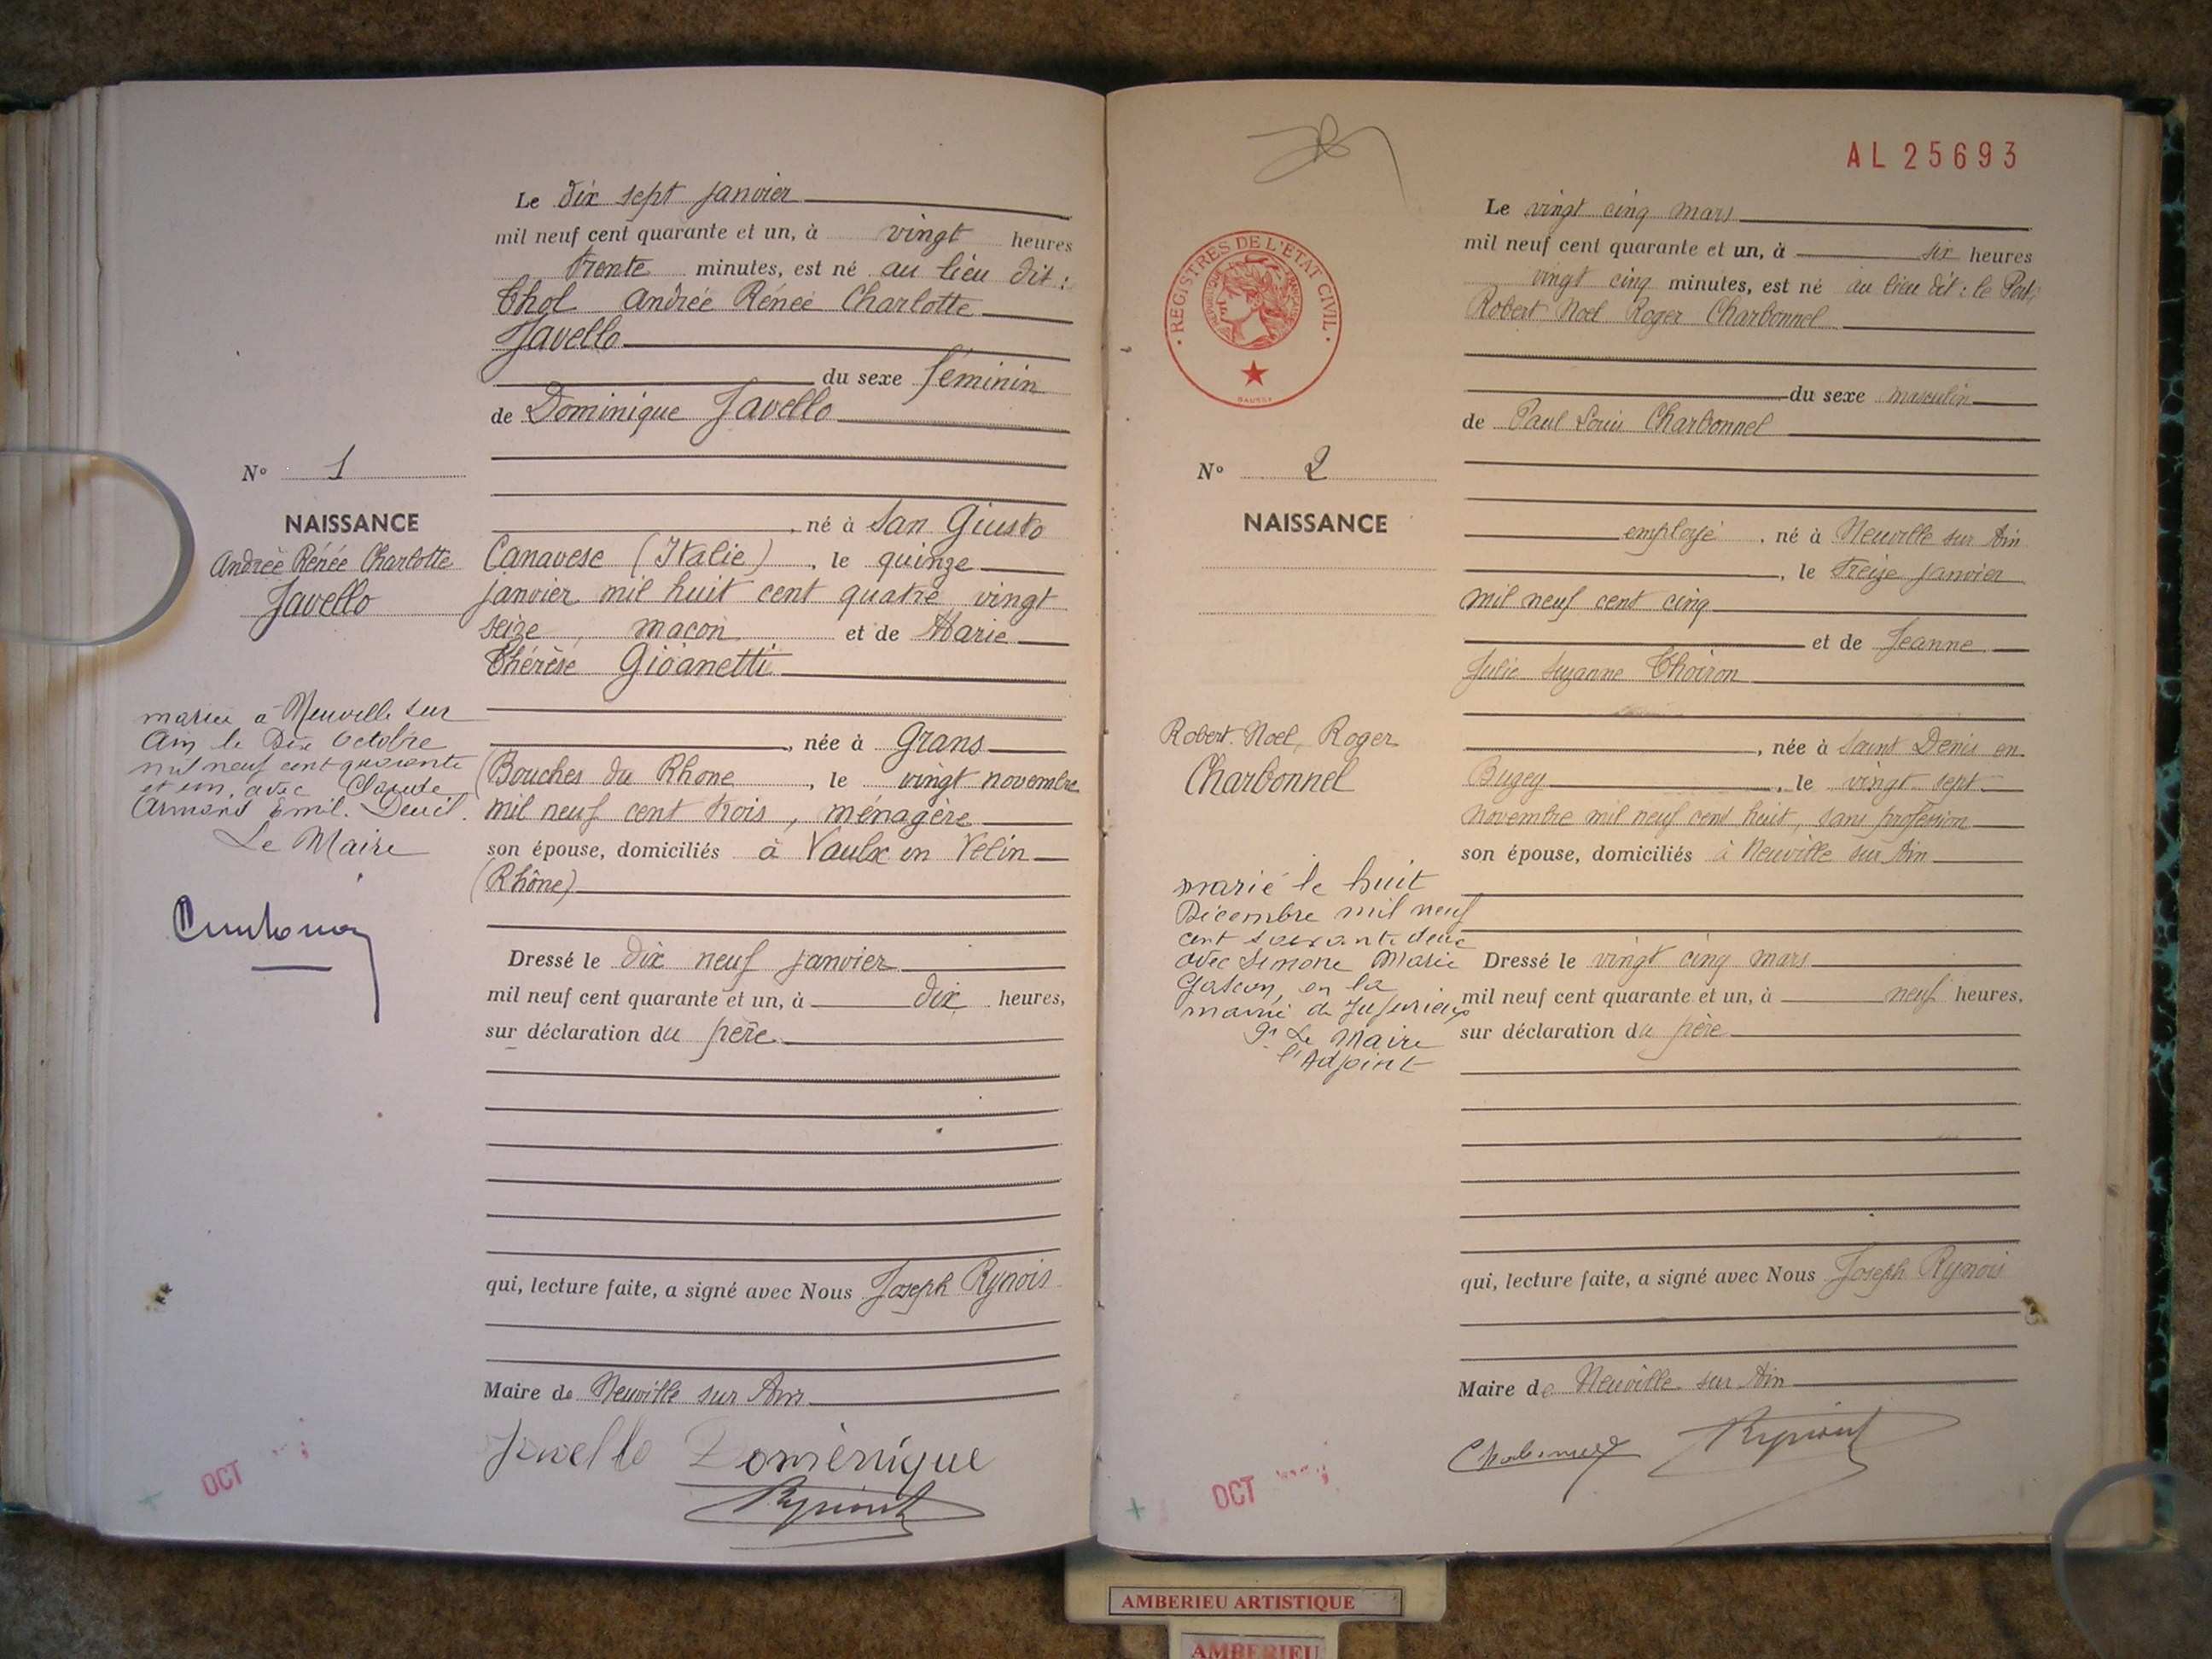 Le dix sept janvier
mil neuf cent quarante et un, à vingt heures
trente minutes, est né au lieu dit :
Thol Andrée Rénée Charlotte
Javello
du sexe féminin
de Dominique Javello
N° 1
, né à San Giusto
NAISSANCE
Andrée Rénée Charlotte
Javello
Canavese (Italie), le quinze
janvier mil huit cent quatre vingt
seize, maçon et de Marie
Thérèse Gioanetti
, née à Grans
(Bouches du Rhone, le vingt novembre
mil neuf cent trois, ménagère
son épouse, domiciliés à Vaulx en Velin
(Rhône)
mariée à Neuville sur
Ain le Dix Octobre
mil neuf cent quarante
et un, avec Claude
Armand Emil.
Le Maire
Dressé le dix neuf janvier
mil neuf cent quarante et un, à dix heures,
sur déclaration du père
qui, lecture faite, a signé avec Nous Joseph Rynois
Maire de Neuville sur Ain
Javello Doménique
OCT
AL 25693
REGISTRES DE L'ETAT CIVIL
Le vingt cinq mars
mil neuf cent quarante et un, à six heures
vingt cinq minutes, est né au lieu dit : le Pont
Robert Noel Roger Charbonnel
du sexe masculin
de Paul Louis Charbonnel
N° 2
NAISSANCE
employé, né à Neuville sur Ain
, le treize janvier
mil neuf cent cinq
et de Jeanne
Julie Suzanne Thoiron
Robert Noel, Roger
Charbonnel
, née à Saint Denis en
Bugey, le vingt sept
novembre mil neuf cent huit, sans profession
son épouse, domiciliés à Neuville sur Ain
marié le huit
Décembre mil neuf
cent soixante deux
avec Simone Marie
Gascon, en la
mairie de Jujurieux
Pr Le Maire
l'Adjoint
Dressé le vingt cinq mars
mil neuf cent quarante et un, à neuf heures,
sur déclaration du père
qui, lecture faite, a signé avec Nous Joseph Rynois
Maire de Neuville sur Ain
OCT
AMBERIEU ARTISTIQUE
AMBERIEU